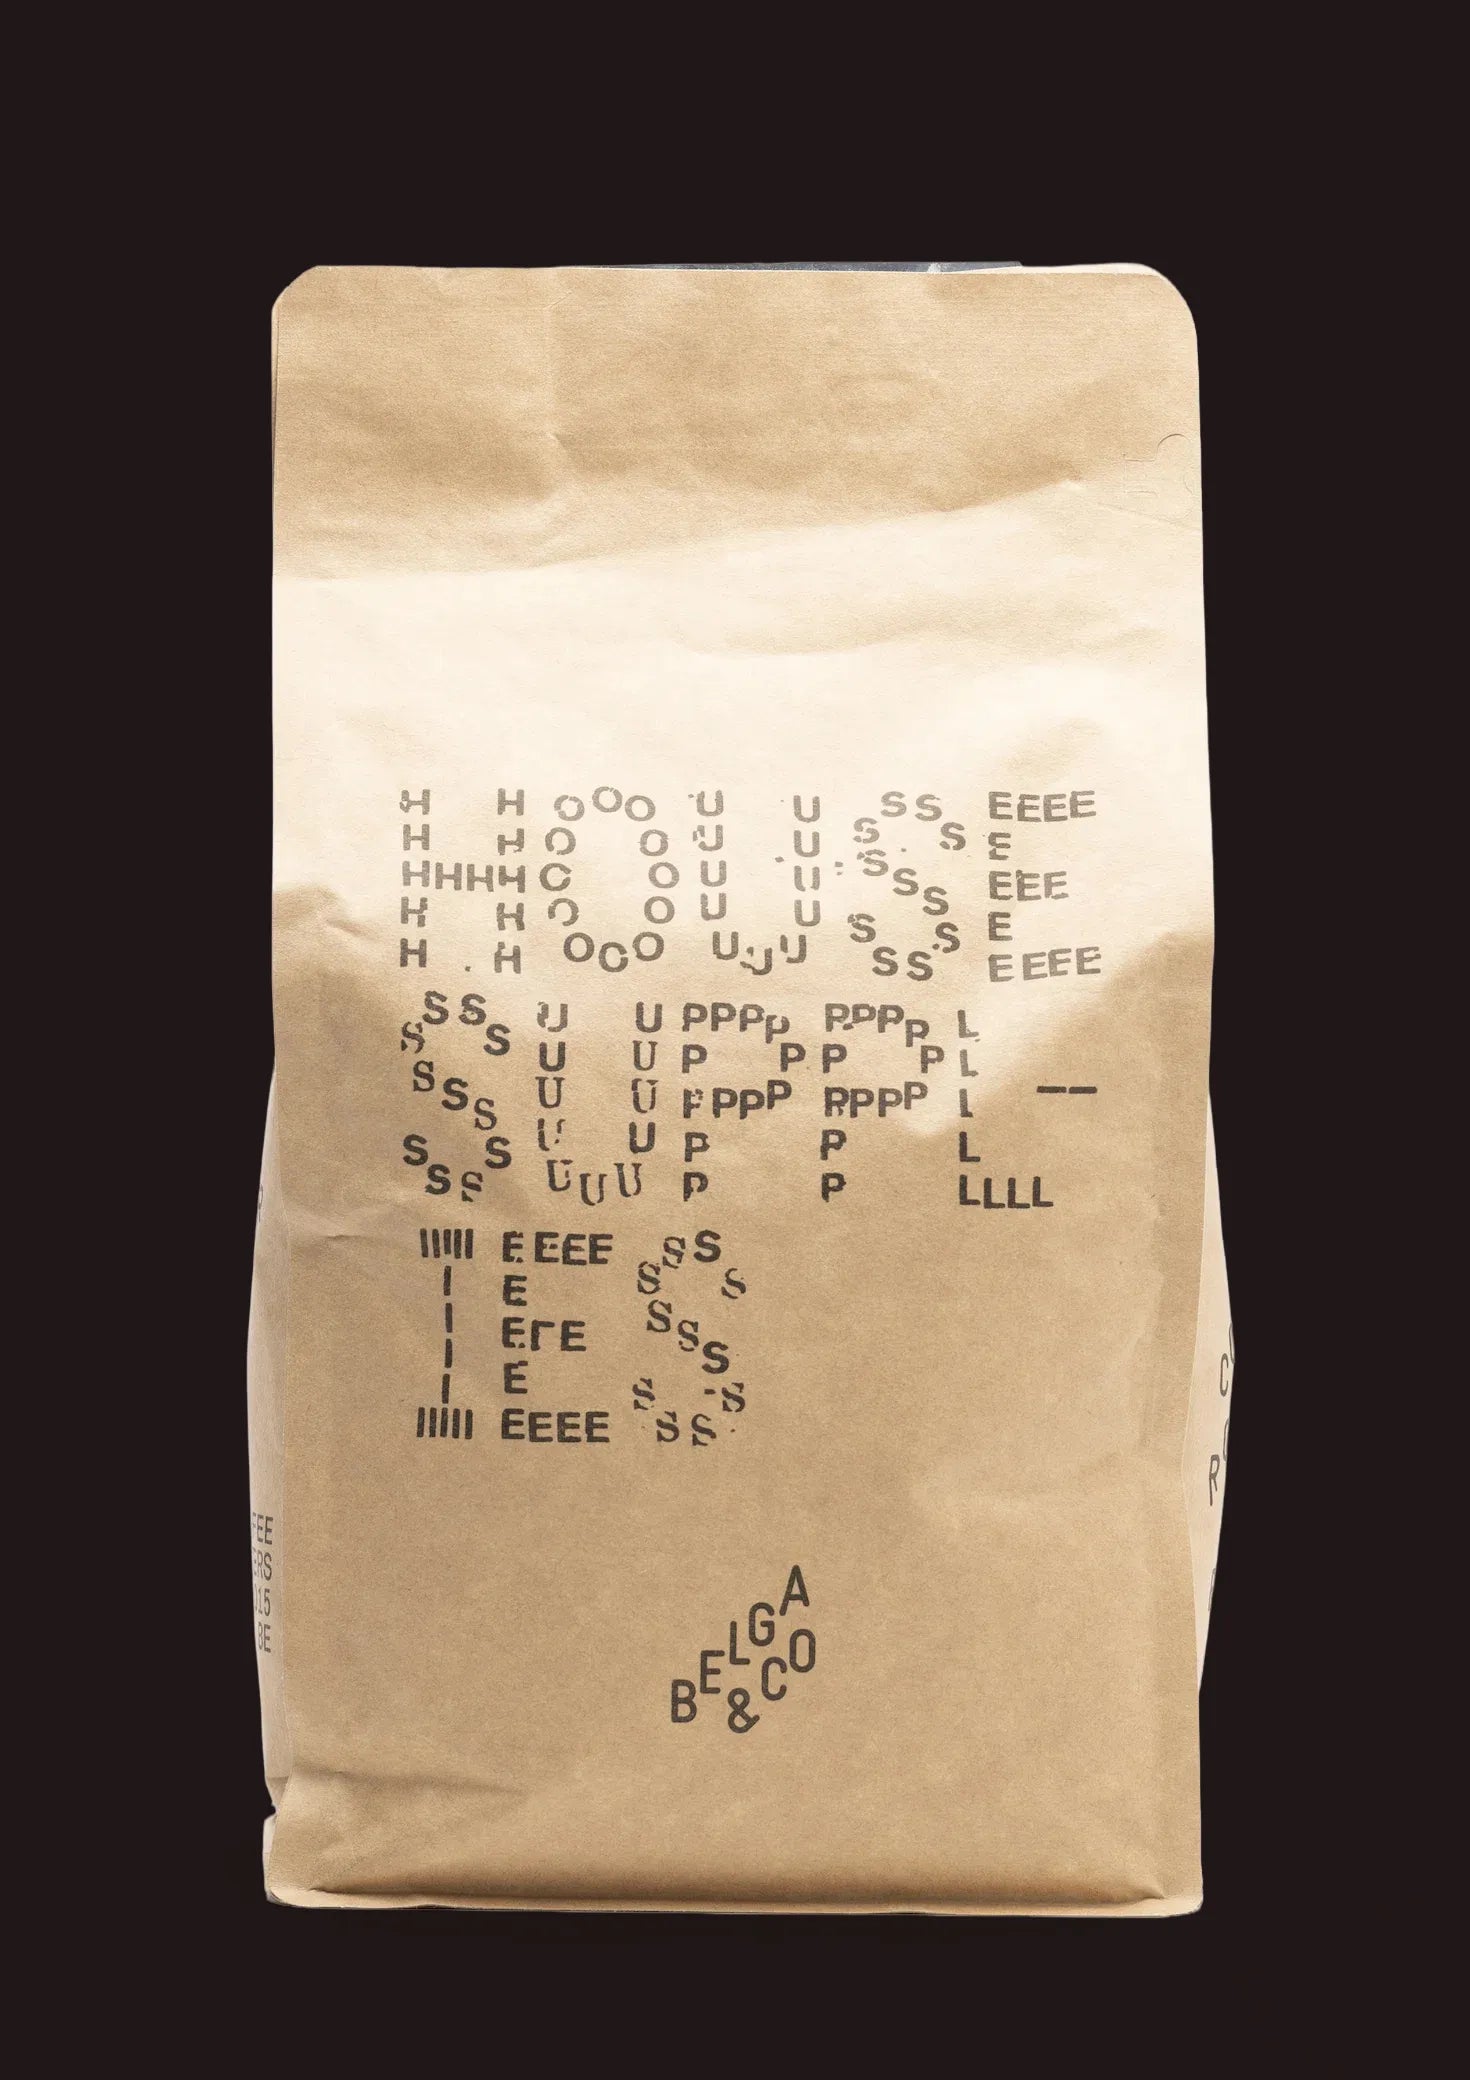 HOUSE
SUPPL—
IES
BELGA
&CO
EE
RS
15
BE